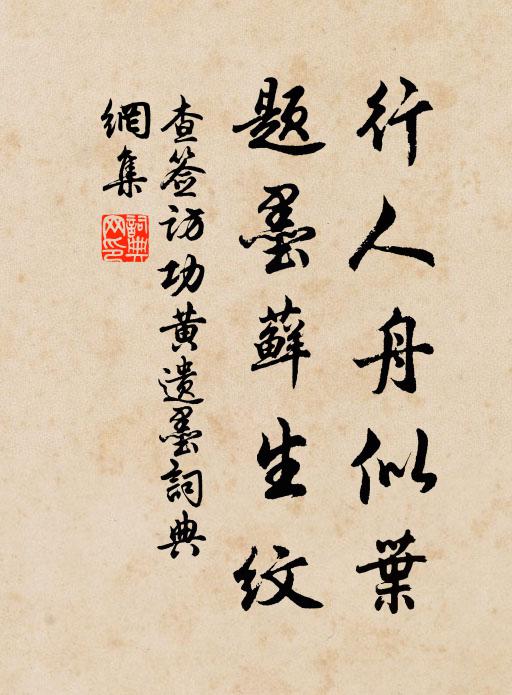 行人舟似葉
題墨蘚生紋
查簽訪功黃遺墨詞典
網集
詞典
網印